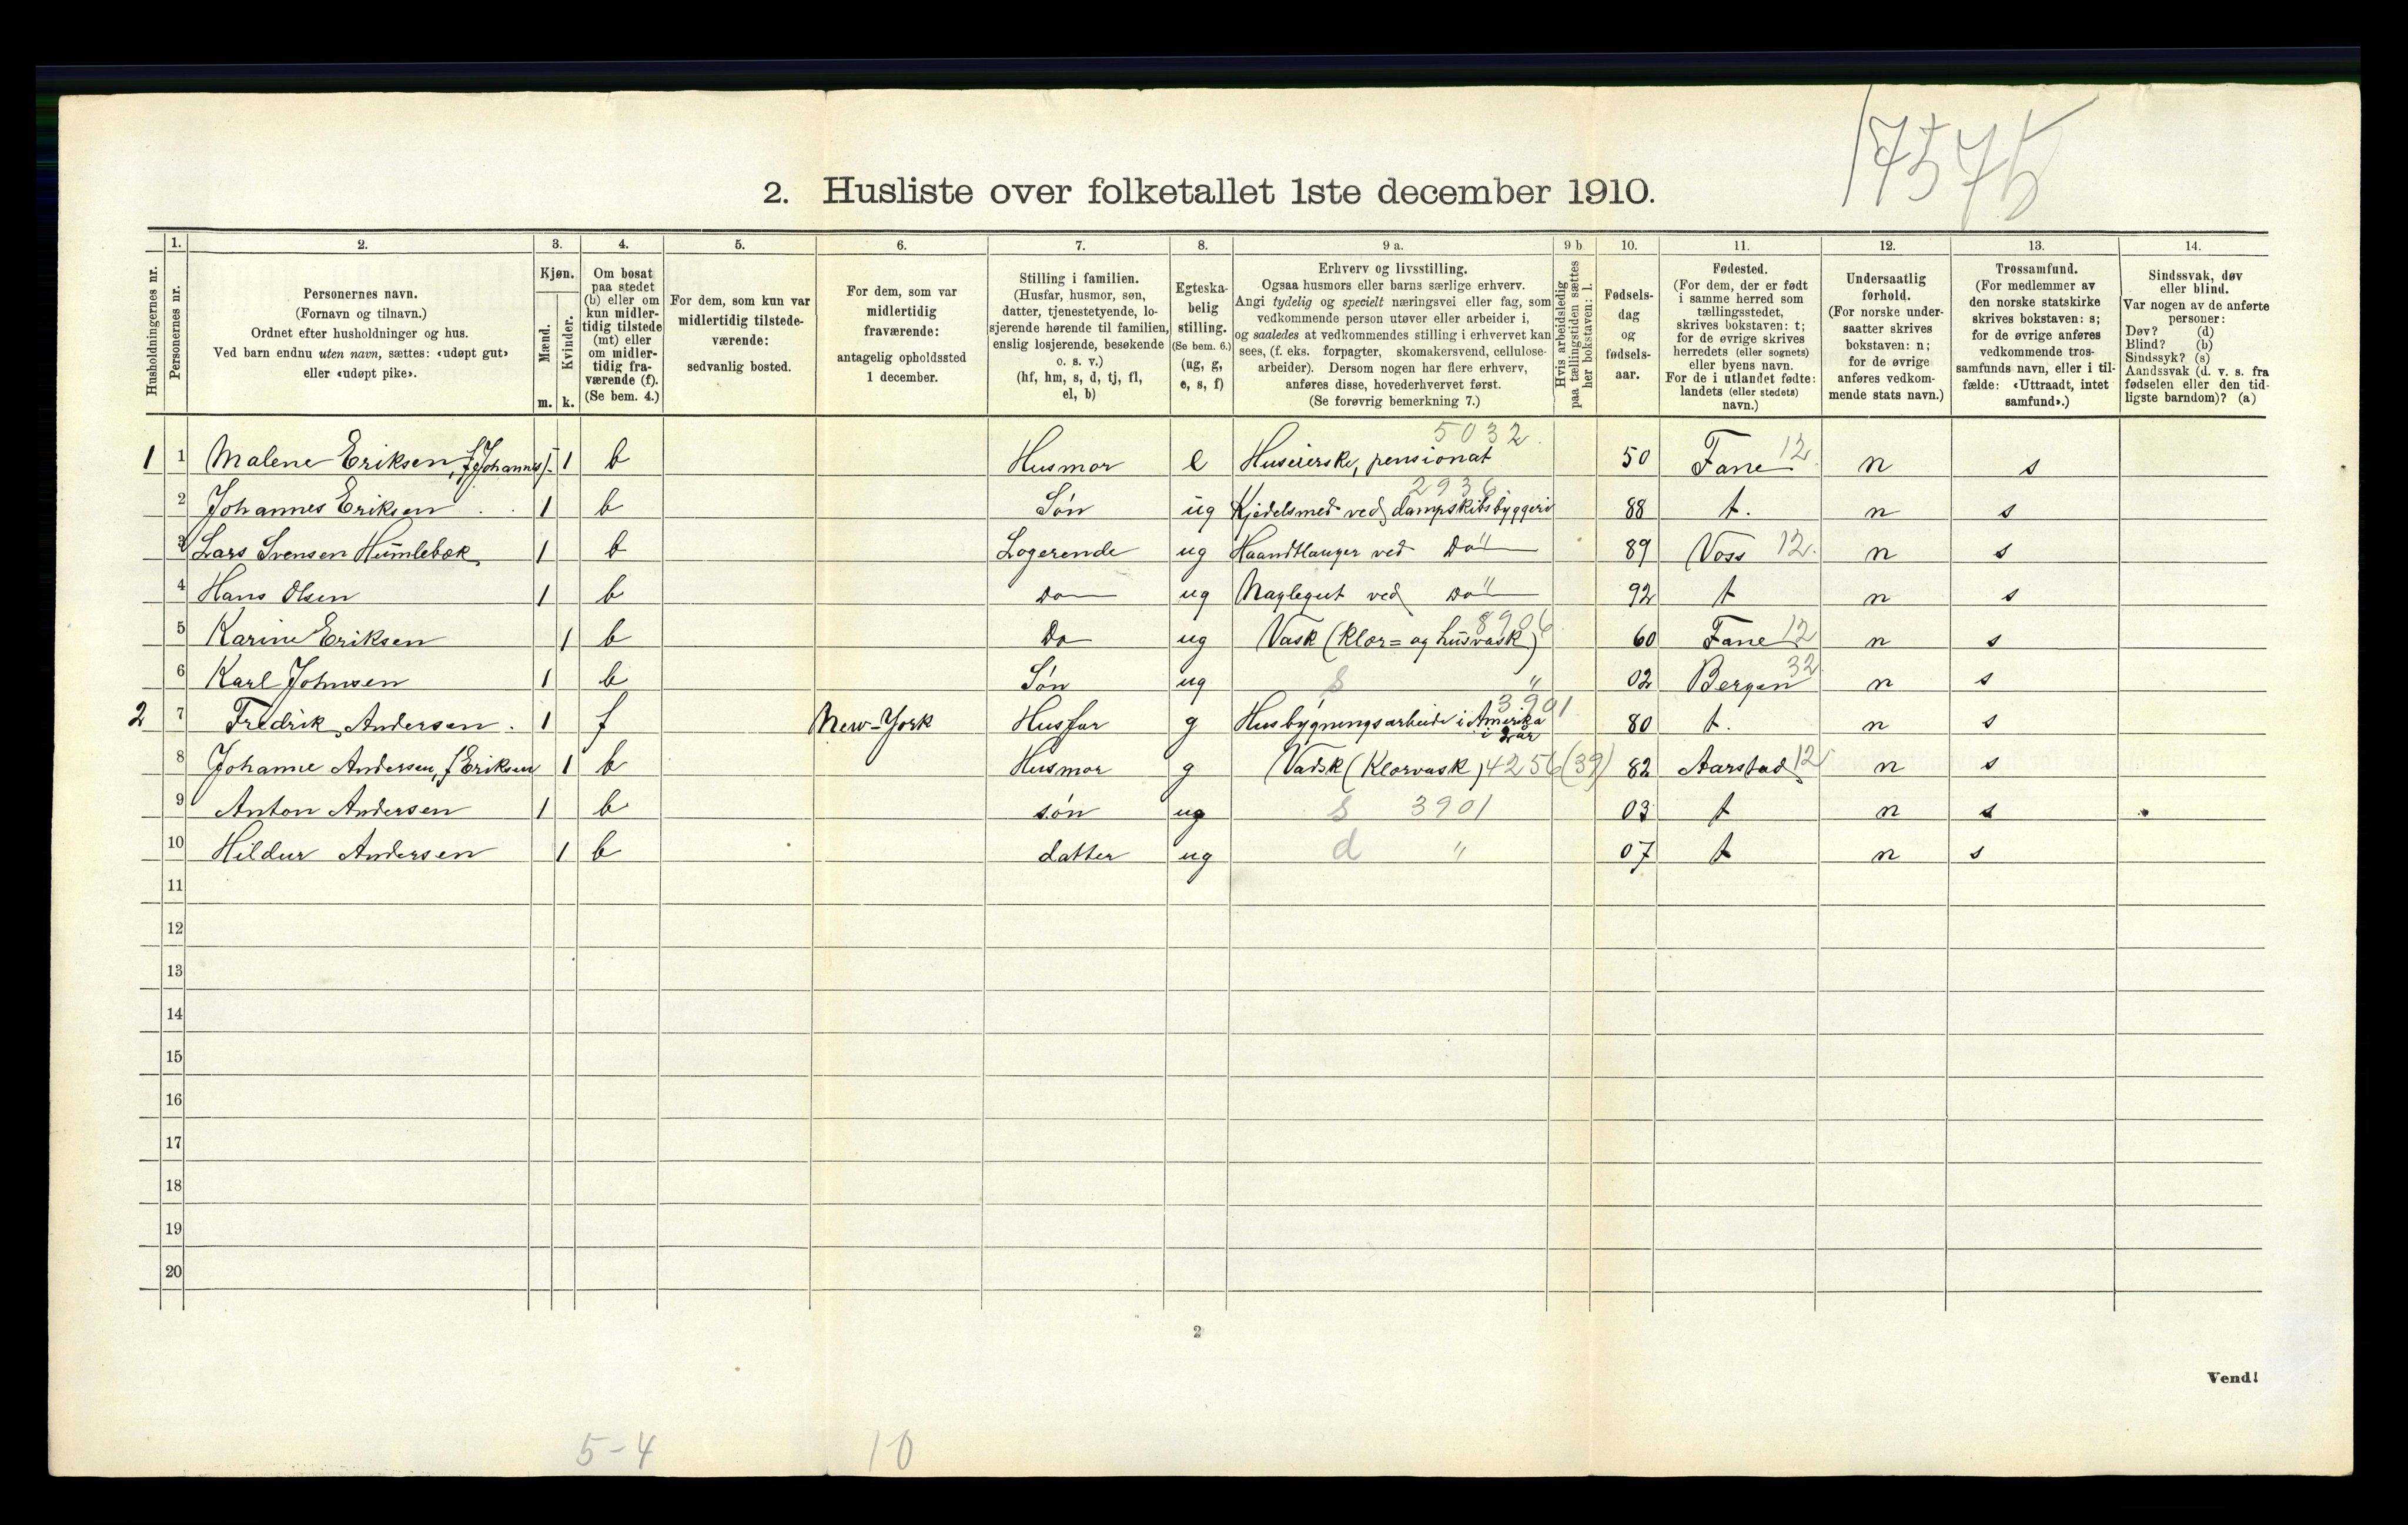 17575
2. Husliste over folketallet 1ste december 1910.
Husholdningernes nr.
1. Personernes nr.
2. Personernes navn.
(Fornavn og tilnavn.)
Ordnet efter husholdninger og hus.
Ved barn endnu uten navn, sættes: «udøpt gut»
eller «udøpt pike».
3. Kjøn.
Mænd. m.
Kvinder. k.
4. Om bosat
paa stedet
(b) eller om
kun midler-
tidig tilstede
(mt) eller
om midler-
tidig fra-
værende (f).
(Se bem. 4.)
5. For dem, som kun var
midlertidig tilstede-
værende:
sedvanlig bosted.
6. For dem, som var
midlertidig
fraværende:
antagelig opholdssted
1 december.
7. Stilling i familien.
(Husfar, husmor, søn,
datter, tjenestetyende, lo-
sjerende hørende til familien,
enslig losjerende, besøkende
o. s. v.)
(hf, hm, s, d, tj, fl,
el, b)
8. Egteska-
belig
stilling.
(Se bem. 6.)
(ug, g,
e, s, f)
9 a. Erhverv og livsstilling.
Ogsaa husmors eller barns særlige erhverv.
Angi tydelig og specielt næringsvei eller fag, som
vedkommende person utøver eller arbeider i,
og saaledes at vedkommendes stilling i erhvervet kan
sees, (f. eks. forpagter, skomakersvend, cellulose-
arbeider). Dersom nogen har flere erhverv,
anføres disse, hovederhvervet først.
(Se forøvrig bemerkning 7.)
9 b Hvis arbeidsledig
paa tællingstiden sættes
her bokstaven: l.
10. Fødsels-
dag
og
fødsels-
aar.
11. Fødested.
(For dem, der er født
i samme herred som
tællingsstedet,
skrives bokstaven: t;
for de øvrige skrives
herredets (eller sognets)
eller byens navn.
For de i utlandet fødte:
landets (eller stedets)
navn.)
12. Undersaatlig
forhold.
(For norske under-
saatter skrives
bokstaven: n;
for de øvrige
anføres vedkom-
mende stats navn.)
13. Trossamfund.
(For medlemmer av
den norske statskirke
skrives bokstaven: s;
for de øvrige anføres
vedkommende tros-
samfunds navn, eller i til-
fælde: «Uttraadt, intet
samfund».)
14. Sindssvak, døv
eller blind.
Var nogen av de anførte
personer:
Døv? (d)
Blind? (b)
Sindssyk? (s)
Aandssvak (d. v. s. fra
fødselen eller den tid-
ligste barndom)? (a)
1 1 Malene Eriksen, f. Johannes) 1 b Husmor e Huseierske, pensionat 5032 50 Fane 12 n s
2 Johannes Eriksen 1 b Søn ug Kjedelsmed ved dampskibsbyggeri 2936 88 t. n s
3 Lars Svensen Humlebæk 1 b Logerende ug Haandtlanger ved Do " 89 Voss 12. n s
4 Hans Olsen 1 b Do ug Naglegut ved Do " 92 t n s
5 Karine Eriksen 1 b Do ug Vask (Klær= og husvask) 8906 60 Fane 12 n s
6 Karl Johnsen 1 b Søn ug s " 02 Bergen 32 n s
2 7 Fredrik Andersen. 1 f New-York Husfar g Husbygningsarbeide i Amerika 3901 80 t. n s
i 2 aar
8 Johanne Andersen, f Eriksen 1 b Husmor g Vadsk (Klærvask) 4256 (39) 82 Aarstad 12 n s
9 Anton Andersen 1 b søn ug s 3901 03 t n s
10 Hildur Andersen 1 b datter ug d " 07 t n s
11
12
13
14
15
16
17
18
19
20
2
Vend!
5-4 10